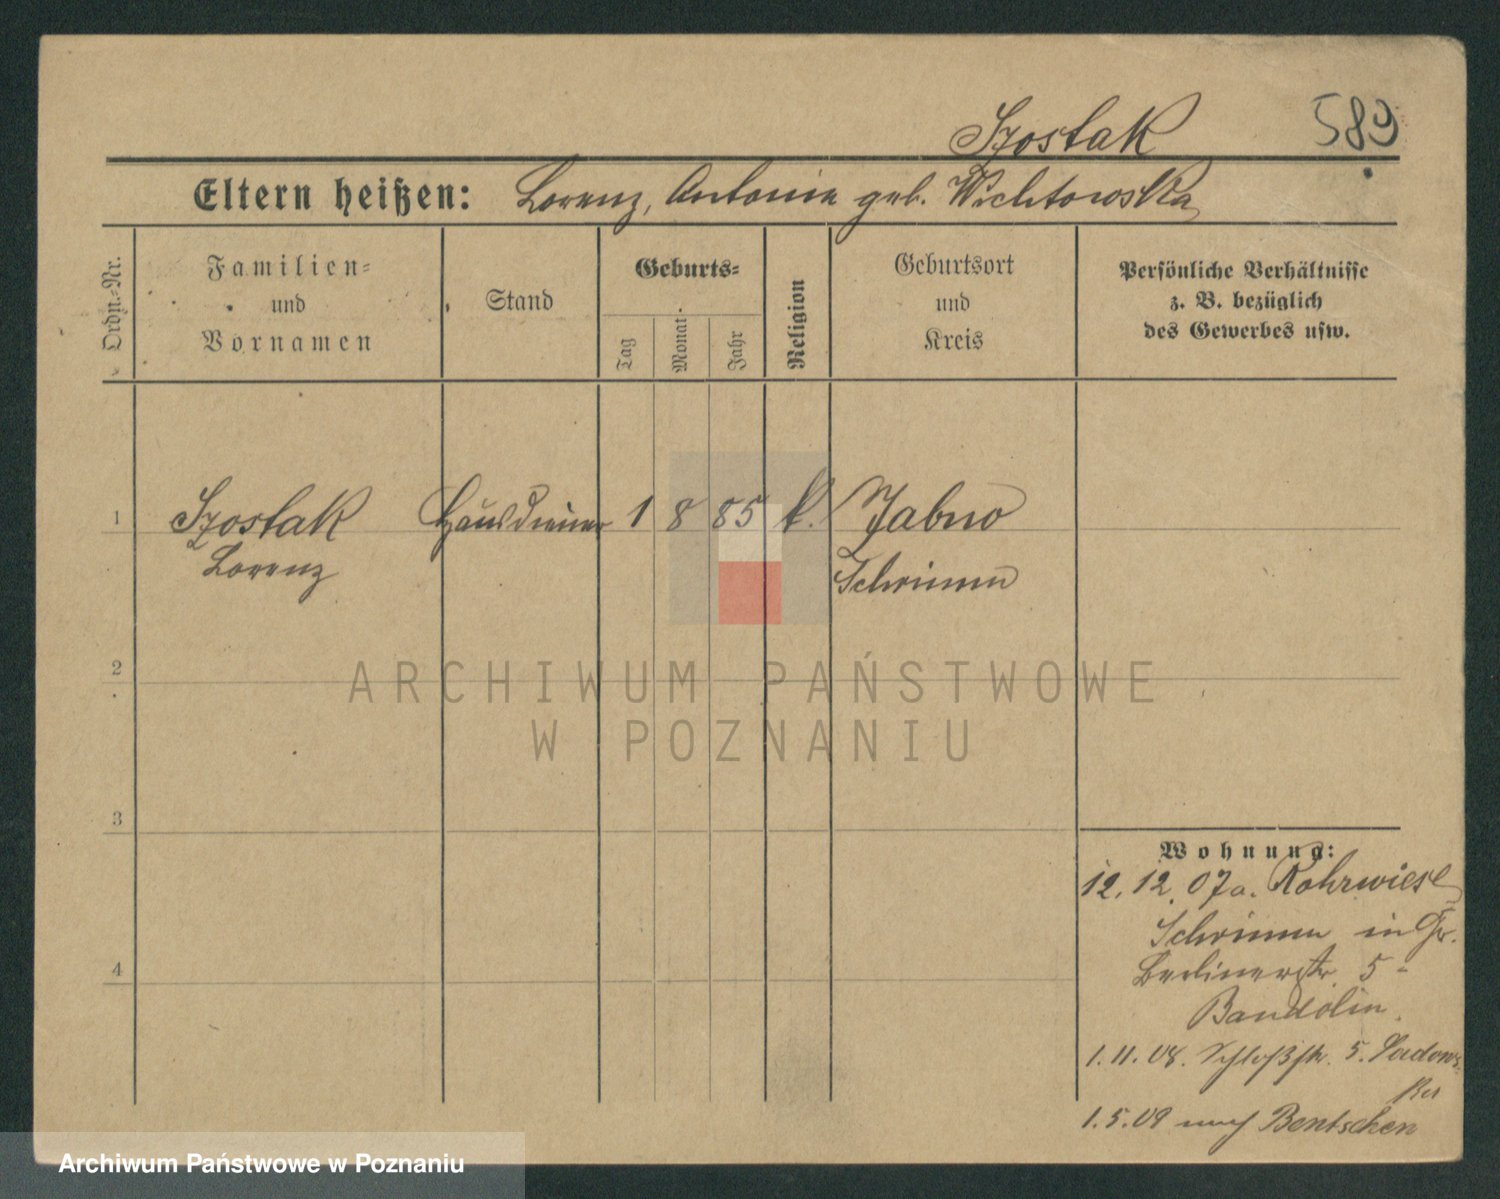 Szostak
589
Eltern heißen: Lorenz, Antonie geb. Wichtowska
Ordn.-Nr.
Familien-
und
Vornamen
Stand
Geburts-
Tag
Monat
Jahr
Religion
Geburtsort
und
Kreis
Persönliche Verhältnisse
z. B. bezüglich
des Gewerbes usw.
1 Szostak Hausdiener 1 8 85 k. Jabno
Lorenz Schrimm
2
ARCHIWUM PAŃSTWOWE
W POZNANIU
3
Wohnung:
12.12.07 a. Rohrwiese
Schrimm in Gr.
Berlinerstr. 5 -
Bandolin.
1.11.08. Schloßstr. 5.
1.5.09 nach Bentschen
4
Archiwum Państwowe w Poznaniu